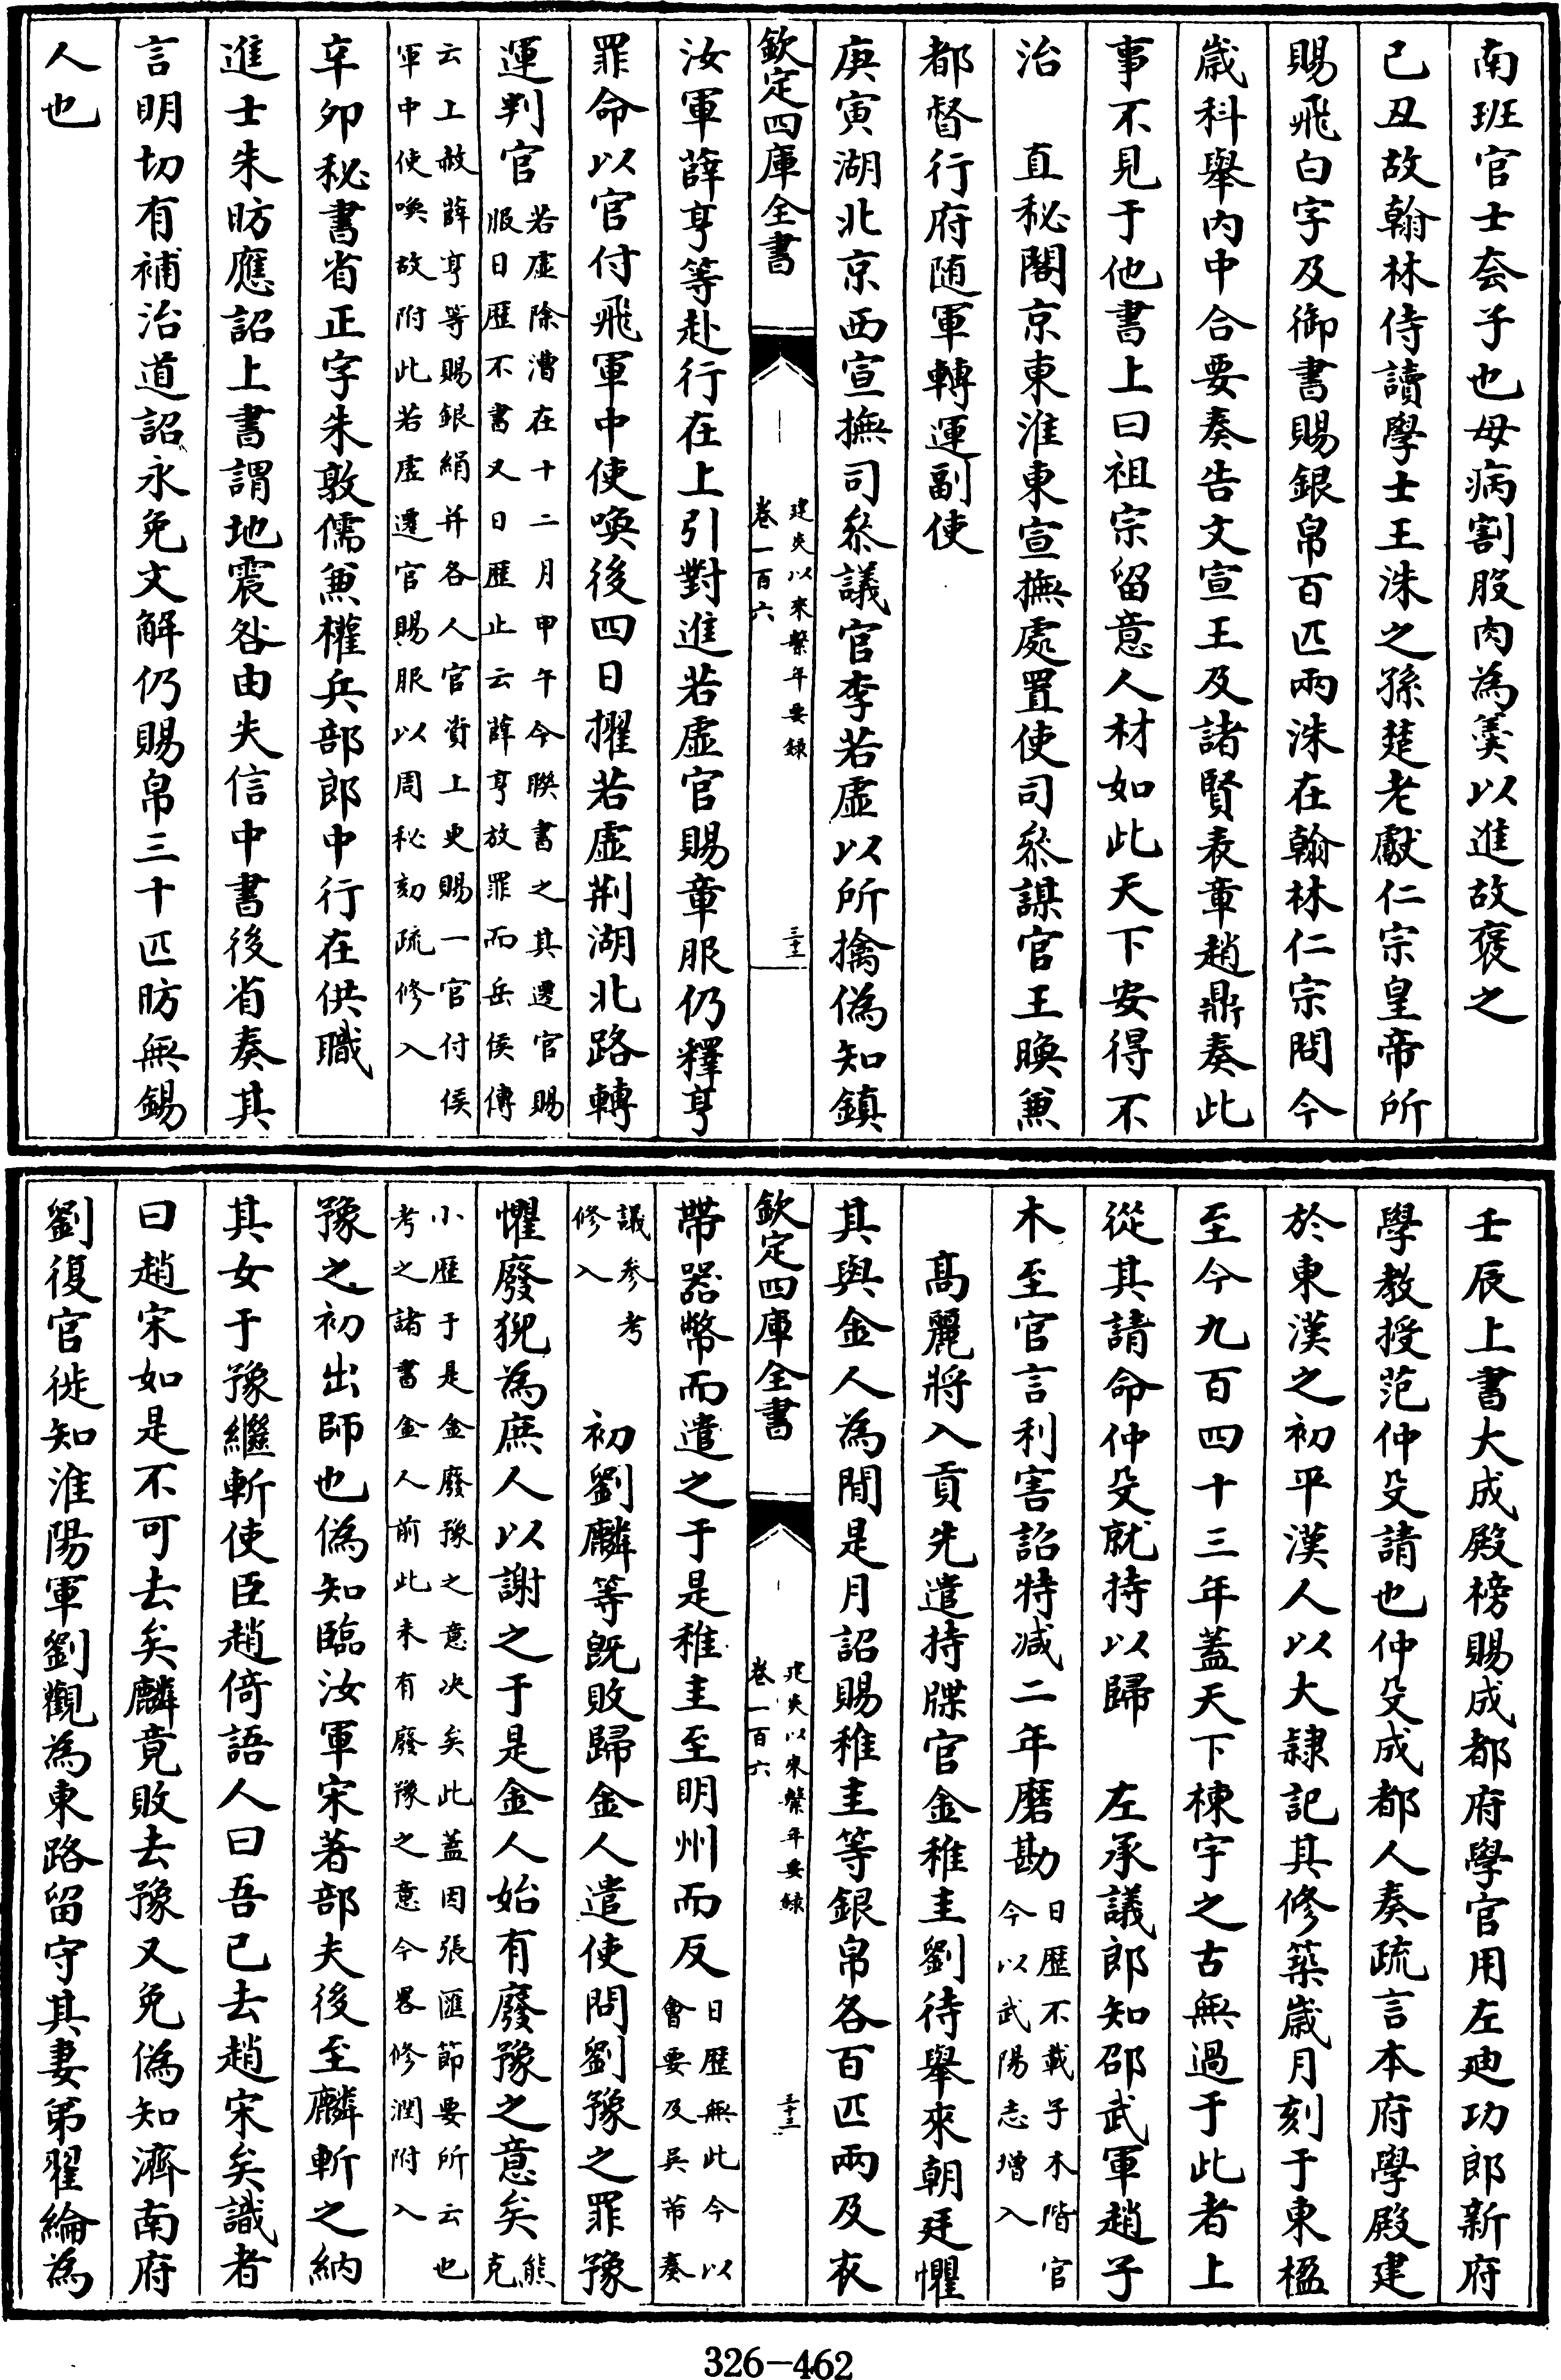 南班官士㑹子也母病割股肉為羹以進故褒之
已丑故翰林侍讀學士王洙之孫楚老獻仁宗皇帝所
賜飛白字及御書賜銀帛百匹兩洙在翰林仁宗問今
嵗科舉内中合要奏告文宣王及諸賢表章趙鼎奏此
事不見于他書上曰祖宗留意人材如此天下安得不
治　直秘閣京東淮東宣撫處置使司叅謀官王㬇兼
都督行府随軍轉運副使
庚寅湖北京西宣撫司叅議官李若虛以所擒偽知鎮
欽定四庫全書
建炎以來繫年要録
卷一百六
三十二
汝軍薛亨等赴行在上引對進若虛官賜章服仍釋亨
罪命以官付飛軍中使喚後四日擢若虛荆湖北路轉
運判官
若虛除漕在十二月甲午今聨書之其遷官賜
服日歴不書又日歴止云薛亨放罪而岳侯傳
云上赦薛亨等賜銀絹并各人官資上更賜一官付侯
軍中使喚故附此若虛遷官賜服以周秘劾疏修入
辛夘秘書省正字朱敦儒兼權兵部郎中行在供職
進士朱昉應詔上書謂地震咎由失信中書後省奏其
言明切有補治道詔永免文解仍賜帛三十匹昉無錫
人也
壬辰上書大成殿榜賜成都府學官用左廸功郎新府
學教授范仲殳請也仲殳成都人奏疏言本府學殿建
於東漢之初平漢人以大𨽻記其修築嵗月刻于東楹
至今九百四十三年蓋天下棟宇之古無過于此者上
從其請命仲殳就持以歸　左承議郎知邵武軍趙子
木至官言利害詔特减二年磨勘
日歴不載子木階官
今以武陽志增入
髙麗將入貢先遣持牒官金稚圭劉待舉來朝廷懼
其與金人為間是月詔賜稚圭等銀帛各百匹兩及衣
欽定四庫全書
建炎以來繫年要録
卷一百六
三十三
帶器幣而遣之于是稚圭至明州而反
日歴無此今以
會要及吳芾奏
議參考
修入
初劉麟等旣敗歸金人遣使問劉豫之罪豫
懼廢猊為庶人以謝之于是金人始有廢豫之意矣
熊
克
小歴于是金廢豫之意决矣此蓋因張匯節要所云也
考之諸書金人前此未有廢豫之意今畧修潤附入
豫之初出師也偽知臨汝軍宋著部夫後至麟斬之納
其女于豫繼斬使臣趙倚語人曰吾已去趙宋矣識者
曰趙宋如是不可去矣麟竟敗去豫又免偽知濟南府
劉復官徙知淮陽軍劉觀為東路留守其妻弟翟綸為
326-462